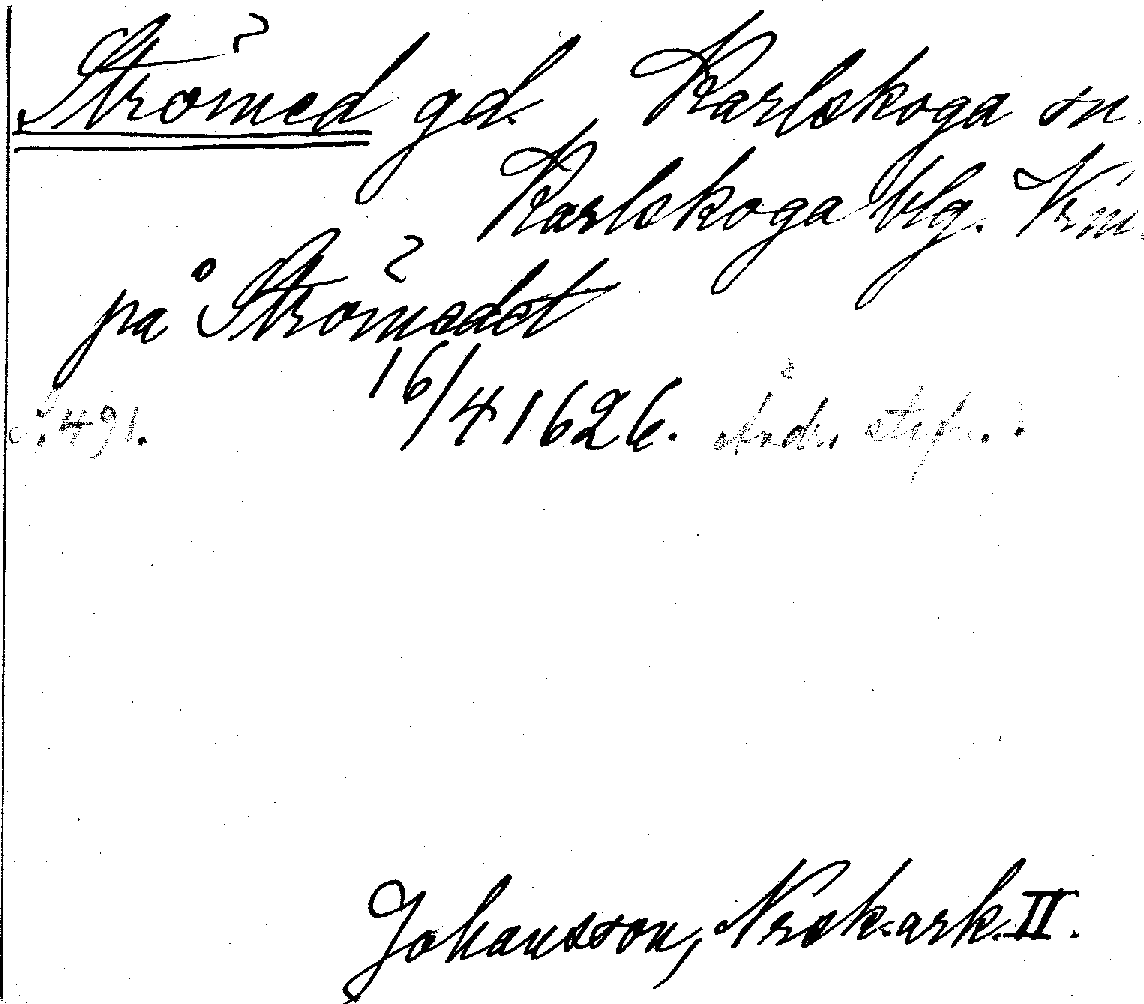 Strömed gd. Karlskoga sn.
Karlskoga blg. Vrm.
på Strömedet
S. 491. 16/4 1626.
Johansson, Norsk. ark. II.